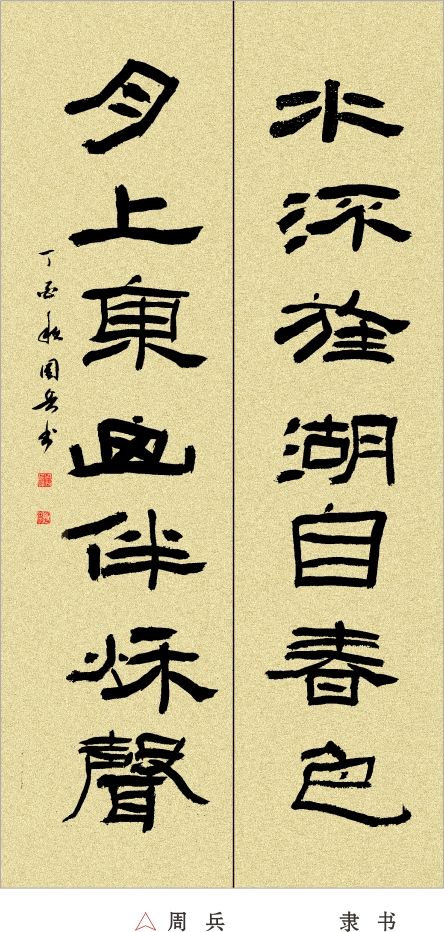 水旌湖自春色
月上東伴秋聲
丁酉秋周兵书
周兵 隶书